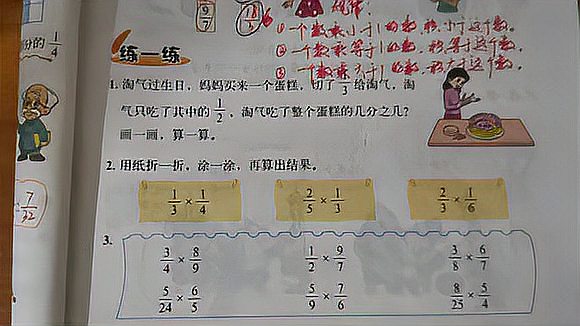 9/7
规律:
① 一个数乘小于1的数,积小于这个数。
② 一个数乘等于1的数,积等于这个数。
③ 一个数乘大于1的数,积大于这个数。
份的 1/4
练一练
1. 淘气过生日,妈妈买来一个蛋糕,切了 1/3 给淘气,淘
气只吃了其中的 1/2,淘气吃了整个蛋糕的几分之几?
画一画,算一算。
2. 用纸折一折,涂一涂,再算出结果。
1/3 × 1/4 2/5 × 1/3 2/3 × 1/6
7/32
3.
3/4 × 8/9 1/2 × 9/7 3/8 × 6/7
5/24 × 6/5 5/9 × 7/6 8/25 × 5/4